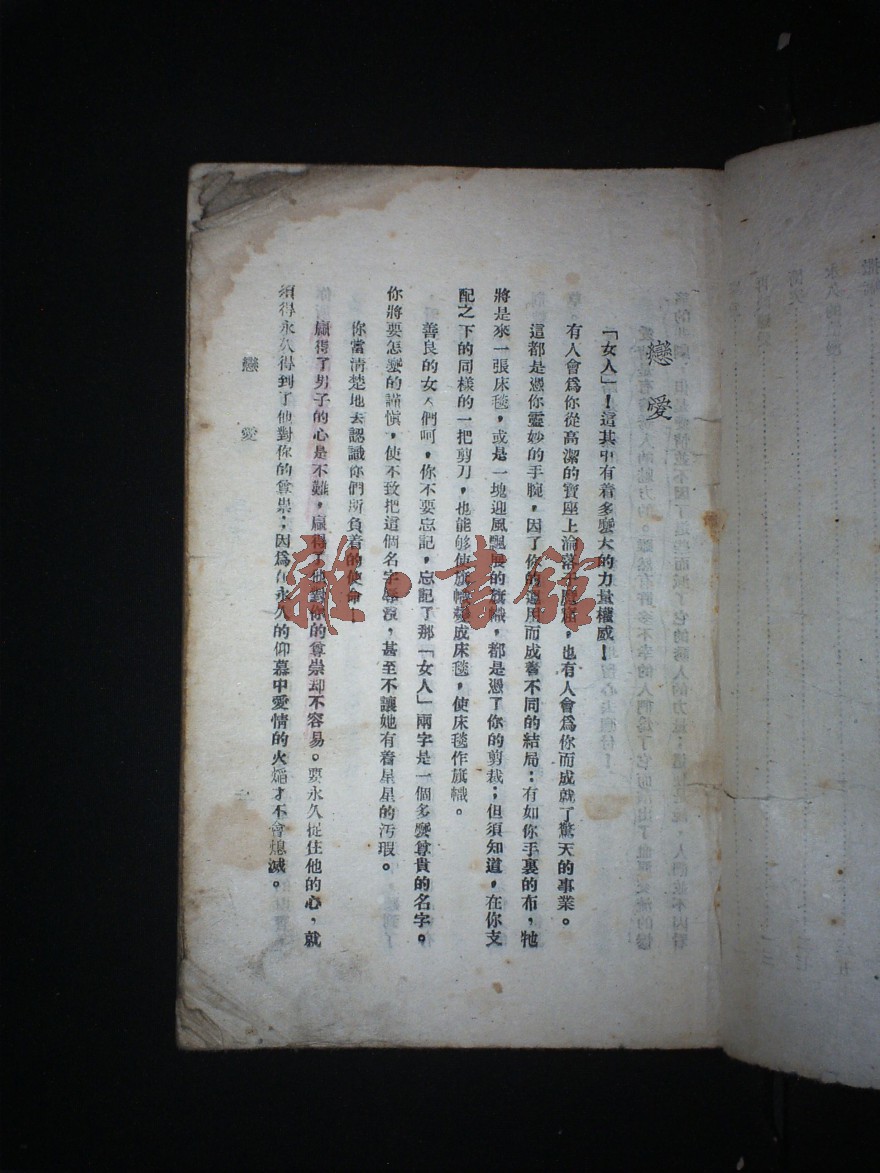 戀愛
「女人」！這其中有着多麼大的力量權威！
有人會爲你從高潔的寶座上淪落，也有人會爲你而成就了驚天的事業。
這都是憑你靈妙的手腕，因了你的運用而成著不同的結局：有如你手裏的布，牠
將是來一張床毯，或是一塊迎風飄展的旗幟，都是憑了你的剪裁；但須知道，在你支
配之下的同樣的一把剪刀，也能够使旗幟變成床毯，使床毯作旗幟。
善良的女人們呵，你不要忘記，忘記了那「女人」兩字是一個多麼尊貴的名字。
你將要怎麼的謹愼，使不致把這個名字辱沒，甚至不讓她有着星星的汚瑕。
你當淸楚地去認識你們所負着的使命！
贏得了男子的心是不難，贏得了他對你的尊崇却不容易。要永久捉住他的心，就
須得永久得到了他對你的尊崇；因爲在永久的仰慕中愛情的火焰才不會熄滅。
戀愛
雜·書館